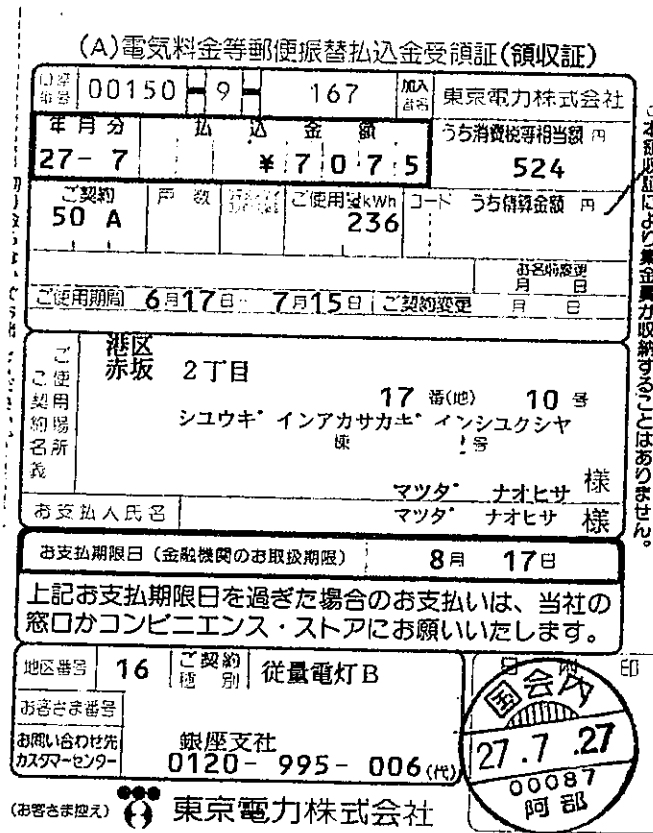 (A)電気料金等郵便振替払込金受領証(領収証)
口座番号 00150-9-167 加入者名 東京電力株式会社
年月分 払込金額 うち消費税等相当額 円
27-7 ¥7075 524
ご契約 戸数 ご使用量kWh コード うち精算金額 円
50 A 236
お名前変更
月 日
ご使用期間 6月17日- 7月15日 ご契約変更 月 日
ご使用場所
ご契約名義
港区
赤坂 2丁目
17 番(地) 10 号
シユウギインアカサカギインシユクシヤ
棟 号
マツダ ナオヒサ 様
お支払人氏名 マツダ ナオヒサ 様
お支払期限日(金融機関のお取扱期限) 8月 17日
上記お支払期限日を過ぎた場合のお支払いは、当社の
窓口かコンビニエンス・ストアにお願いいたします。
地区番号 16 ご契約種別 従量電灯B
お客さま番号
お問い合わせ先
カスタマーセンター
銀座支社
0120-995-006(代)
日附印
国会内
27.7.27
00087
阿部
(お客さま控え) 東京電力株式会社
本領収証により集金員が収納することはありません。